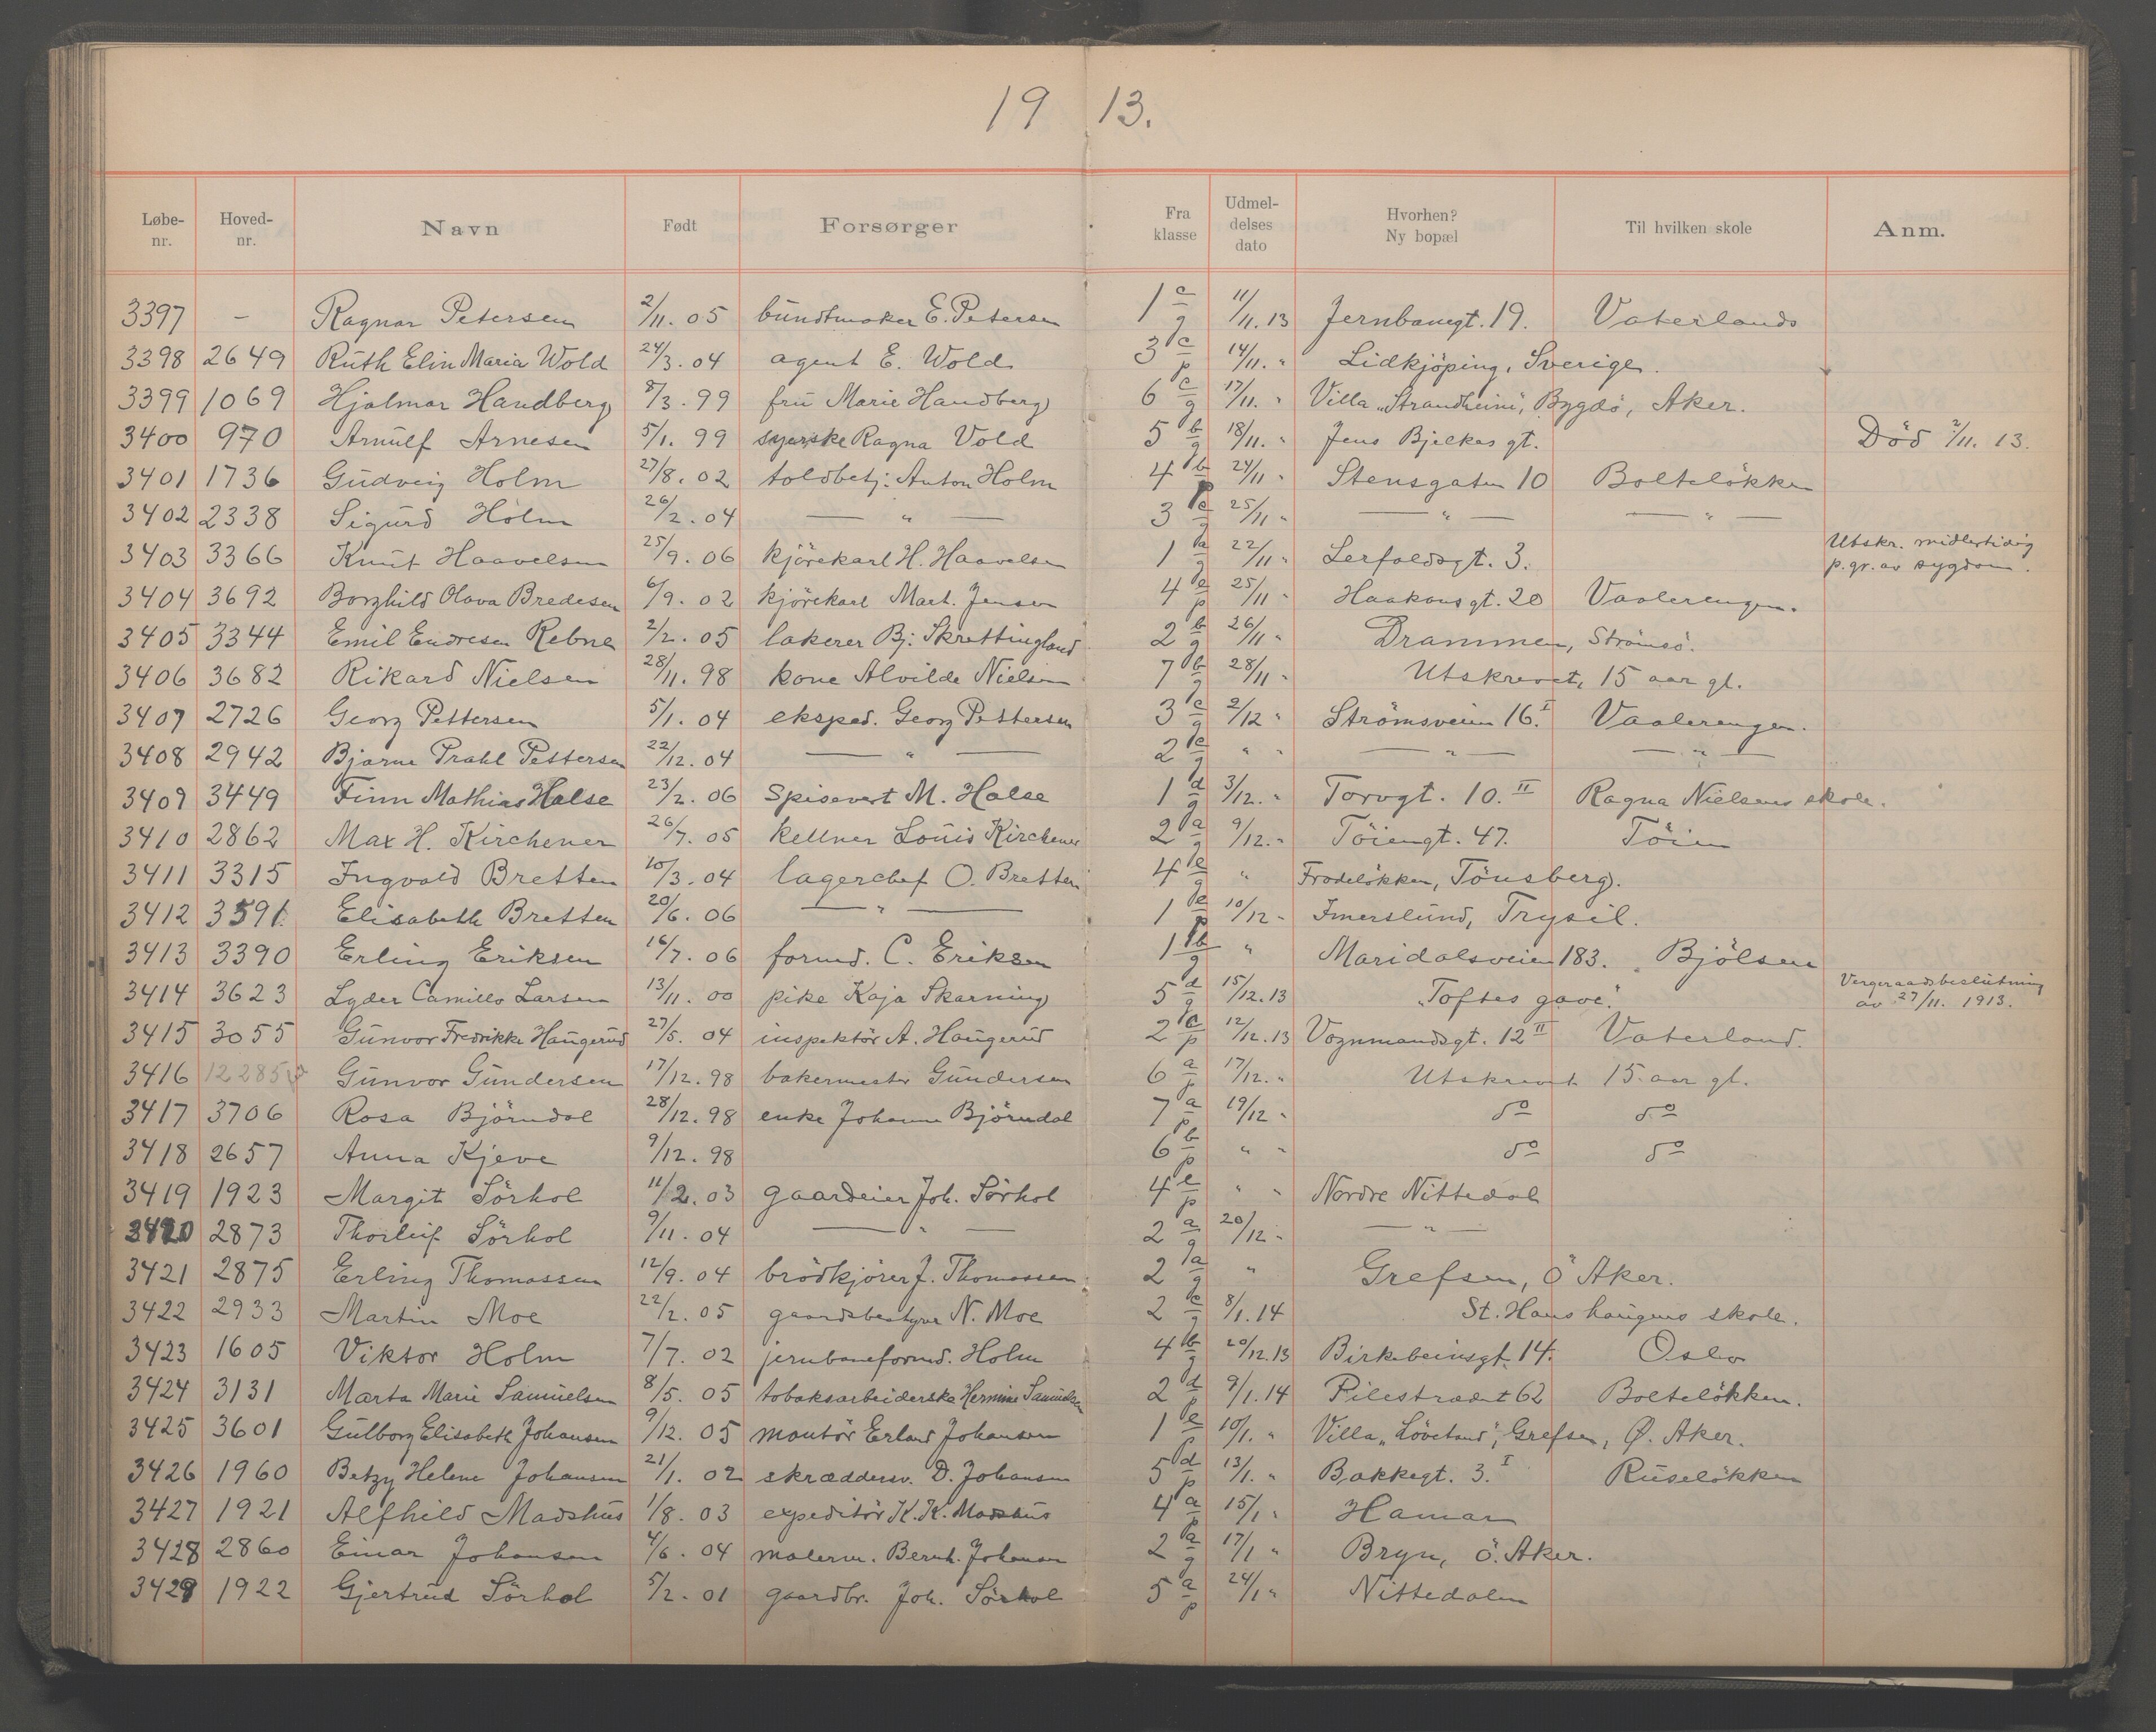 19 13.
Løbe-nr. Hoved-nr. Navn Født Forsørger Fra klasse Udmeldelses dato Hvorhen? Ny bopæl Til hvilken skole Anm.
3397 – Ragnar Petersen 2/11. 05 bundtmaker E. Petersen 1 c/g 11/11. 13 Jernbanegt. 19. Vaterlands
3398 2649 Ruth Elin Maria Wold 24/3. 04 agent E. Wold 3 c/p 14/11. " Lidkjöping, Sverige.
3399 1069 Hjalmar Handberg 8/3. 99 fru Marie Handberg 6 c/g 17/11. " Villa „Strandheim", Bygdö, Aker.
3400 970 Arnulf Arnesen 5/1. 99 syerske Ragna Vold 5 b/g 18/11. " Jens Bjelkes gt. Död 2/11. 13.
3401 1736 Gudveig Holm 27/8. 02 toldbetj. Anton Holm 4 b/p 24/11 " Stensgaten 10 Bolteløkken
3402 2338 Sigurd Holm 26/2. 04 — " — 3 c/g 25/11 " — " — — " —
3403 3366 Knut Haavelsen 25/9. 06 kjörekarl H. Haavelsen 1 a/g 22/11 " Lerfaldsgt. 3. Utskr. midlertidig p. gr. av sygdom.
3404 3692 Borghild Olava Bredesen 6/9. 02 kjörekarl Mart. Jensen 4 e/p 25/11 " Haakonsgt. 20 Vaalerengen.
3405 3344 Emil Endresen Rebne 2/2. 05 lakerer Bj. Skrettingland 2 b/g 26/11 " Drammen, Strömsö.
3406 3682 Rikard Nielsen 28/11. 98 kone Alvilde Nielsen 7 b/g 28/11 " Utskrevet, 15 aar gl.
3407 2726 Georg Pettersen 5/1. 04 eksped. Georg Pettersen 3 c/g 2/12 " Strömsveien 16. I Vaalerengen.
3408 2942 Bjarne Prahl Pettersen 22/12. 04 — " — 2 c/g " " — " — — " —
3409 3449 Finn Mathias Halse 23/2. 06 Spisevert M. Halse 1 d/g 3/12. " Torvgt. 10. II Ragna Nielsens skole.
3410 2862 Max H. Kirchener 26/7. 05 kellner Louis Kirchener 2 a/g 9/12. " Töiengt. 47. Töien
3411 3315 Ingvald Bretten 10/3. 04 lagerchef O. Bretten 4 e/g " Frodeløkken, Tönsberg.
3412 3591. Elisabeth Bretten 20/6. 06 — " — 1 e/p 10/12 " Imerslund, Trysil.
3413 3390 Erling Eriksen 16/7. 06 formd. C. Eriksen 1 b/g " Maridalsveien 183. Bjölsen
3414 3623 Lyder Camillo Larsen 13/11. 00 pike Kaja Skarning 5 d/g 15/12. 13 „Toftes gave". Vergeraadsbeslutning av 27/11. 1913.
3415 3055 Gunvor Fredrikke Haugerud 27/5. 04 inspektör A. Haugerud 2 c/p 12/12. 13 Vognmandsgt. 12 II Vaterland.
3416 Gunvor Gundersen 17/12. 98 bakermester Gundersen 6 a/p 17/12. " Utskrevet 15 aar gl.
3417 3706 Rosa Björndal 28/12. 98 enke Johanne Björndal 7 a/p 19/12 " do do
3418 2657 Anna Kjeve 9/12. 98 6 b/p " " do do
3419 1923 Margit Sörhol 11/2. 03 gaardeier Joh. Sörhol 4 e/p " " Nordre Nittedal
3420 2873 Thorleif Sörhol 9/11. 04 — " — 2 a/g 20/12 " — " —
3421 2875 Erling Thomassen 12/9. 04 brödkjörer J. Thomassen 2 a/g " Grefsen, Ö Aker.
3422 2933 Martin Moe 22/2. 05 gaardsbestyrer N. Moe 2 c/g 8/1. 14 St. Hans haugens skole.
3423 1605 Viktor Holm 7/7. 02 jernbaneformd. Holm 4 b/g 20/12. 13 Birkebeinsgt. 14. Oslo
3424 3131 Marta Marie Samuelsen 8/5. 05 tobaksarbeiderske Hermine Samuelsen 2 d/p 9/1. 14 Pilestrædet 62 Bolteløkken.
3425 3601 Gulborg Elisabeth Johansen 9/12. 05 montör Erland Johansen 1 e/p 10/1. " Villa „Lövetand", Grefsen, Ø. Aker.
3426 1960 Betzy Helene Johansen 21/1. 02 skræddersv. D. Johansen 5 d/p 13/1. " Bakkegt. 3. I Ruseløkken
3427 1921 Alfhild Madshus 1/8. 03 expeditör K. K. Madshus 4 a/p 15/1 " Hamar
3428 2860 Einar Johansen 4/6. 04 malerm. Bernh. Johansen 2 a/g 17/1 " Bryn, Ö. Aker.
3429 1922 Gjertrud Sörhol 5/2. 01 gaardbr. Joh. Sörhol 5 a/p 24/1 " Nittedalen